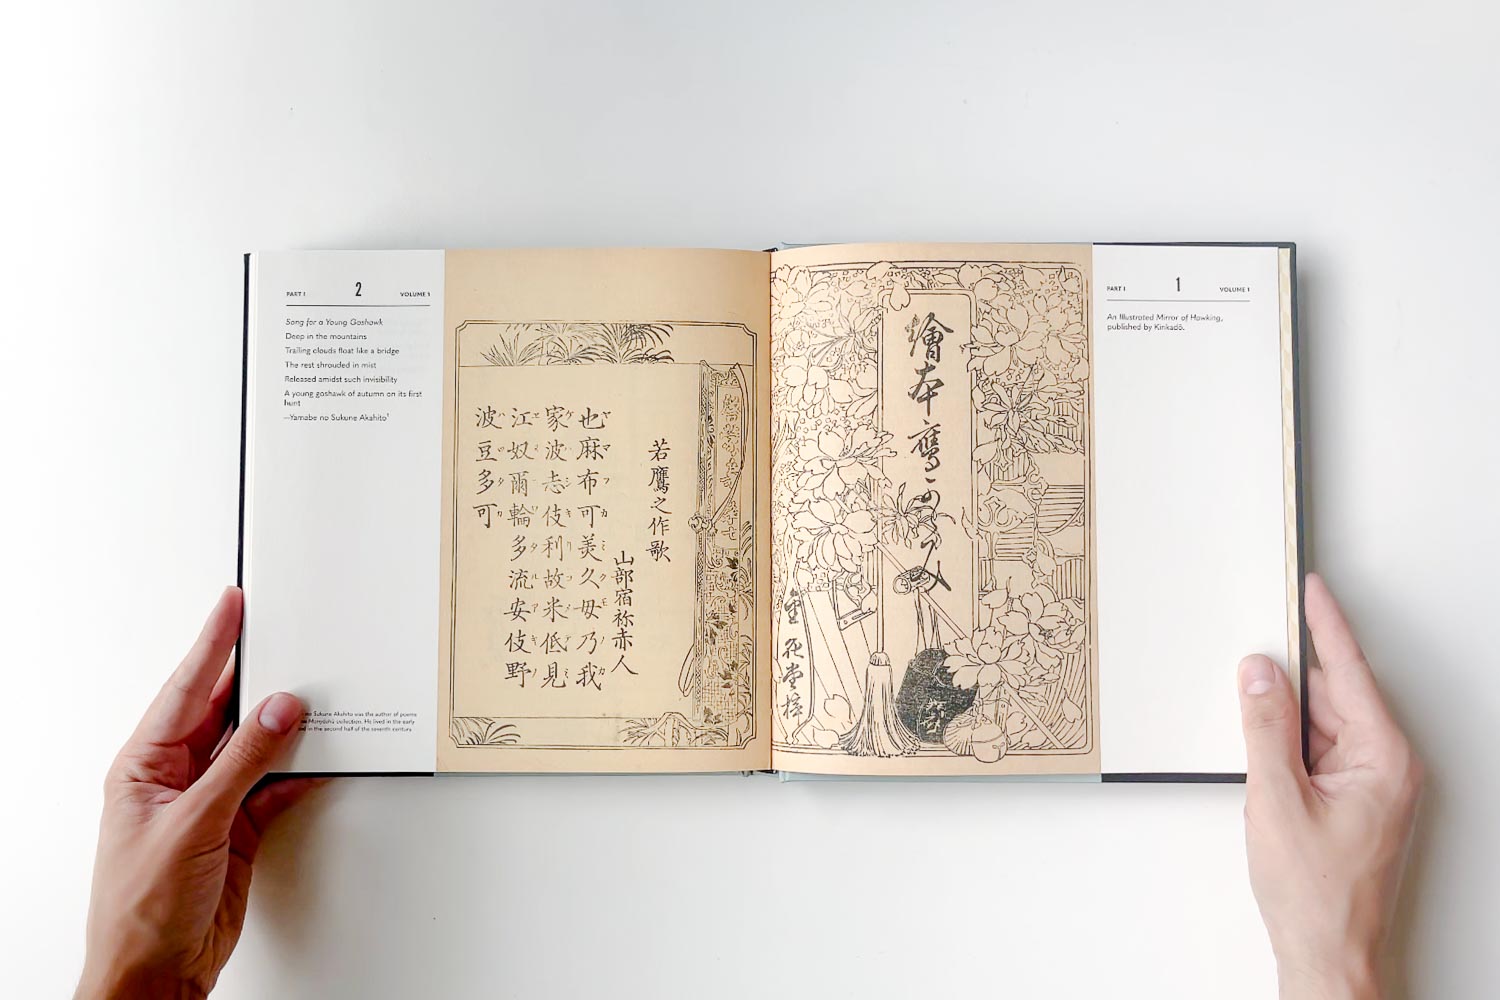 PART I 2 VOLUME 1
Song for a Young Goshawk
Deep in the mountains
Trailing clouds float like a bridge
The rest shrouded in mist
Released amidst such invisibility
A young goshawk of autumn on its first
hunt
—Yamabe no Sukune Akahito¹
no Sukune Akahito was the author of poems
Manyōshū collection. He lived in the early
in the second half of the seventh century
若鷹之作歌
山部宿祢赤人
也麻布可美久毋乃我
家波志伎利故米低見
江奴爾輪多流安伎野
波豆多可
ヤマフカミクモノカ
PART I 1 VOLUME 1
An Illustrated Mirror of Hawking,
published by Kinkadō.
繪本鷹かゞみ
金花堂梓